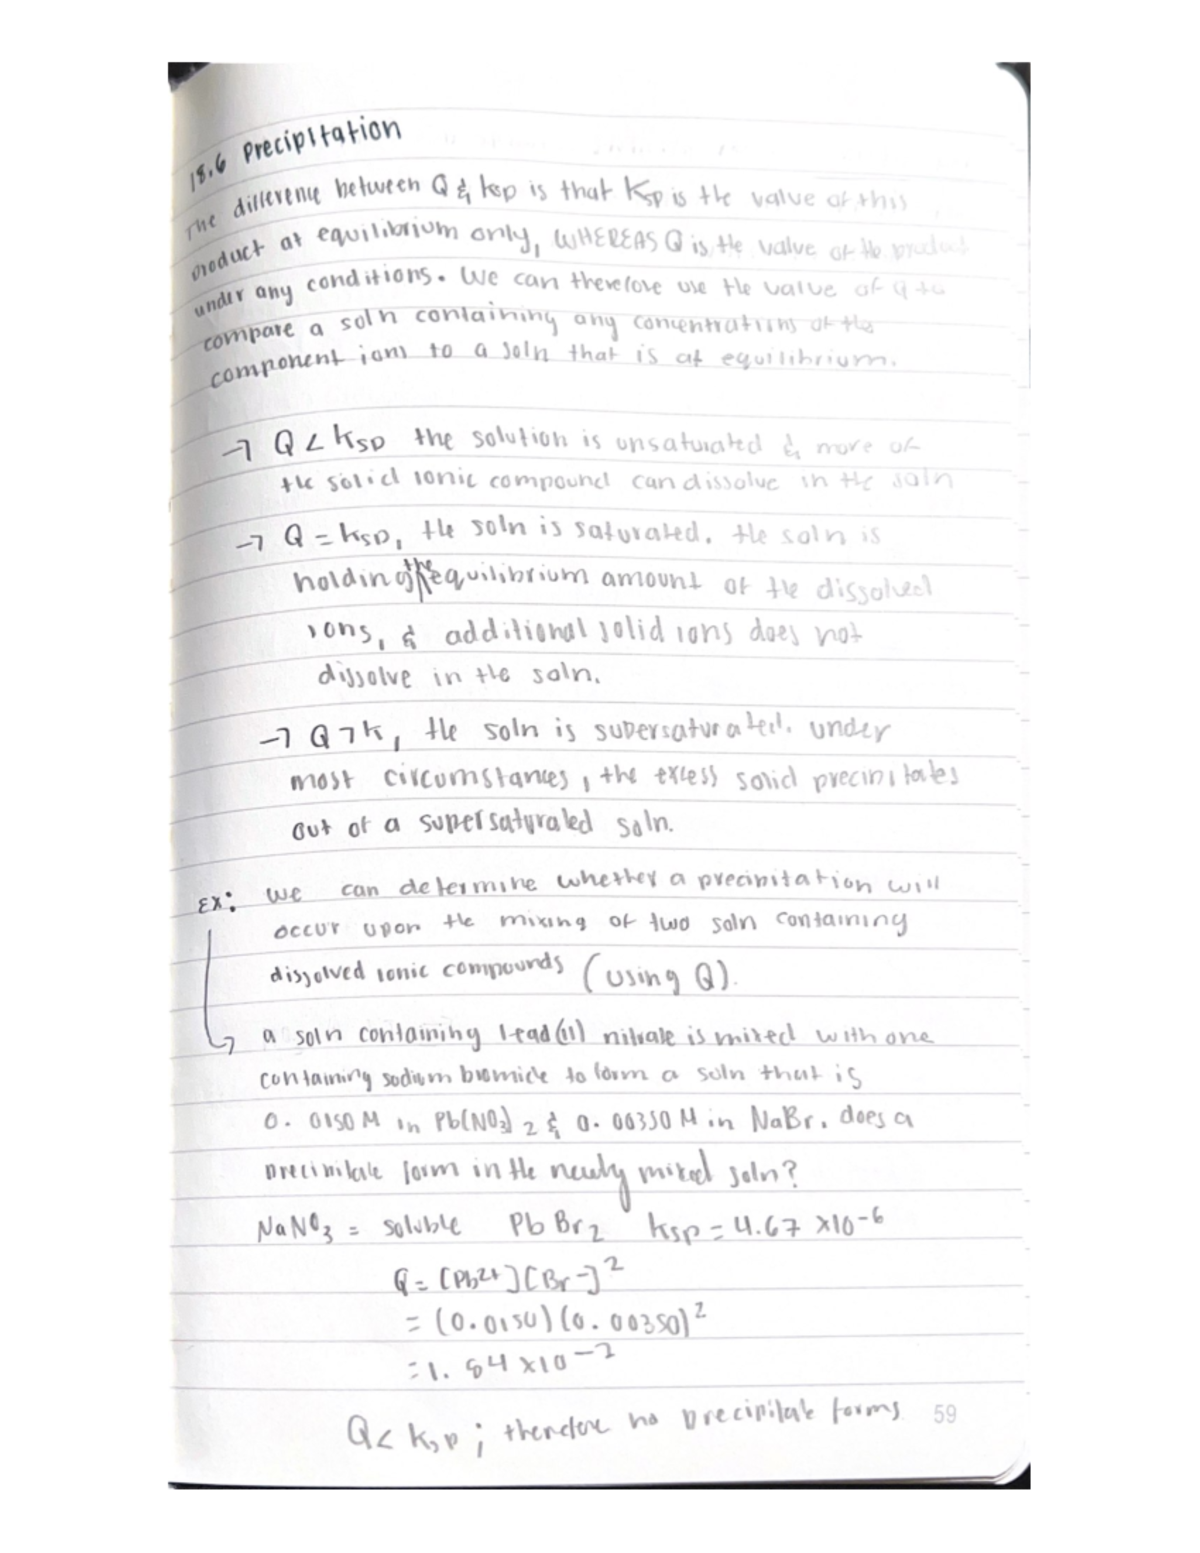 18.6 Precipitation
The difference between Q & Ksp is that Ksp is the value of this
product at equilibrium only, WHEREAS Q is the value of the product
under any conditions. We can therefore use the value of Q to
compare a soln containing any concentrations of the
component ions to a soln that is at equilibrium.
→ Q < Ksp the solution is unsaturated & more of
the solid ionic compound can dissolve in the soln
→ Q = Ksp, the soln is saturated. the soln is
holding the equilibrium amount of the dissolved
ions, & additional solid ions does not
dissolve in the soln.
→ Q > K, the soln is supersaturated. under
most circumstances, the excess solid precipitates
out of a supersaturated soln.
Ex: we can determine whether a precipitation will
occur upon the mixing of two soln containing
dissolved ionic compounds (using Q).
↳ a soln containing lead(II) nitrate is mixed with one
containing sodium bromide to form a soln that is
0.0150 M in Pb(NO3)2 & 0.00350 M in NaBr. does a
precipitate form in the newly mixed soln?
NaNO3 = soluble PbBr2 Ksp = 4.67 x10-6
Q = [Pb2+][Br-]2
= (0.0150)(0.00350)2
= 1.84 x10-7
Q < Ksp; therefore no precipitate forms 59